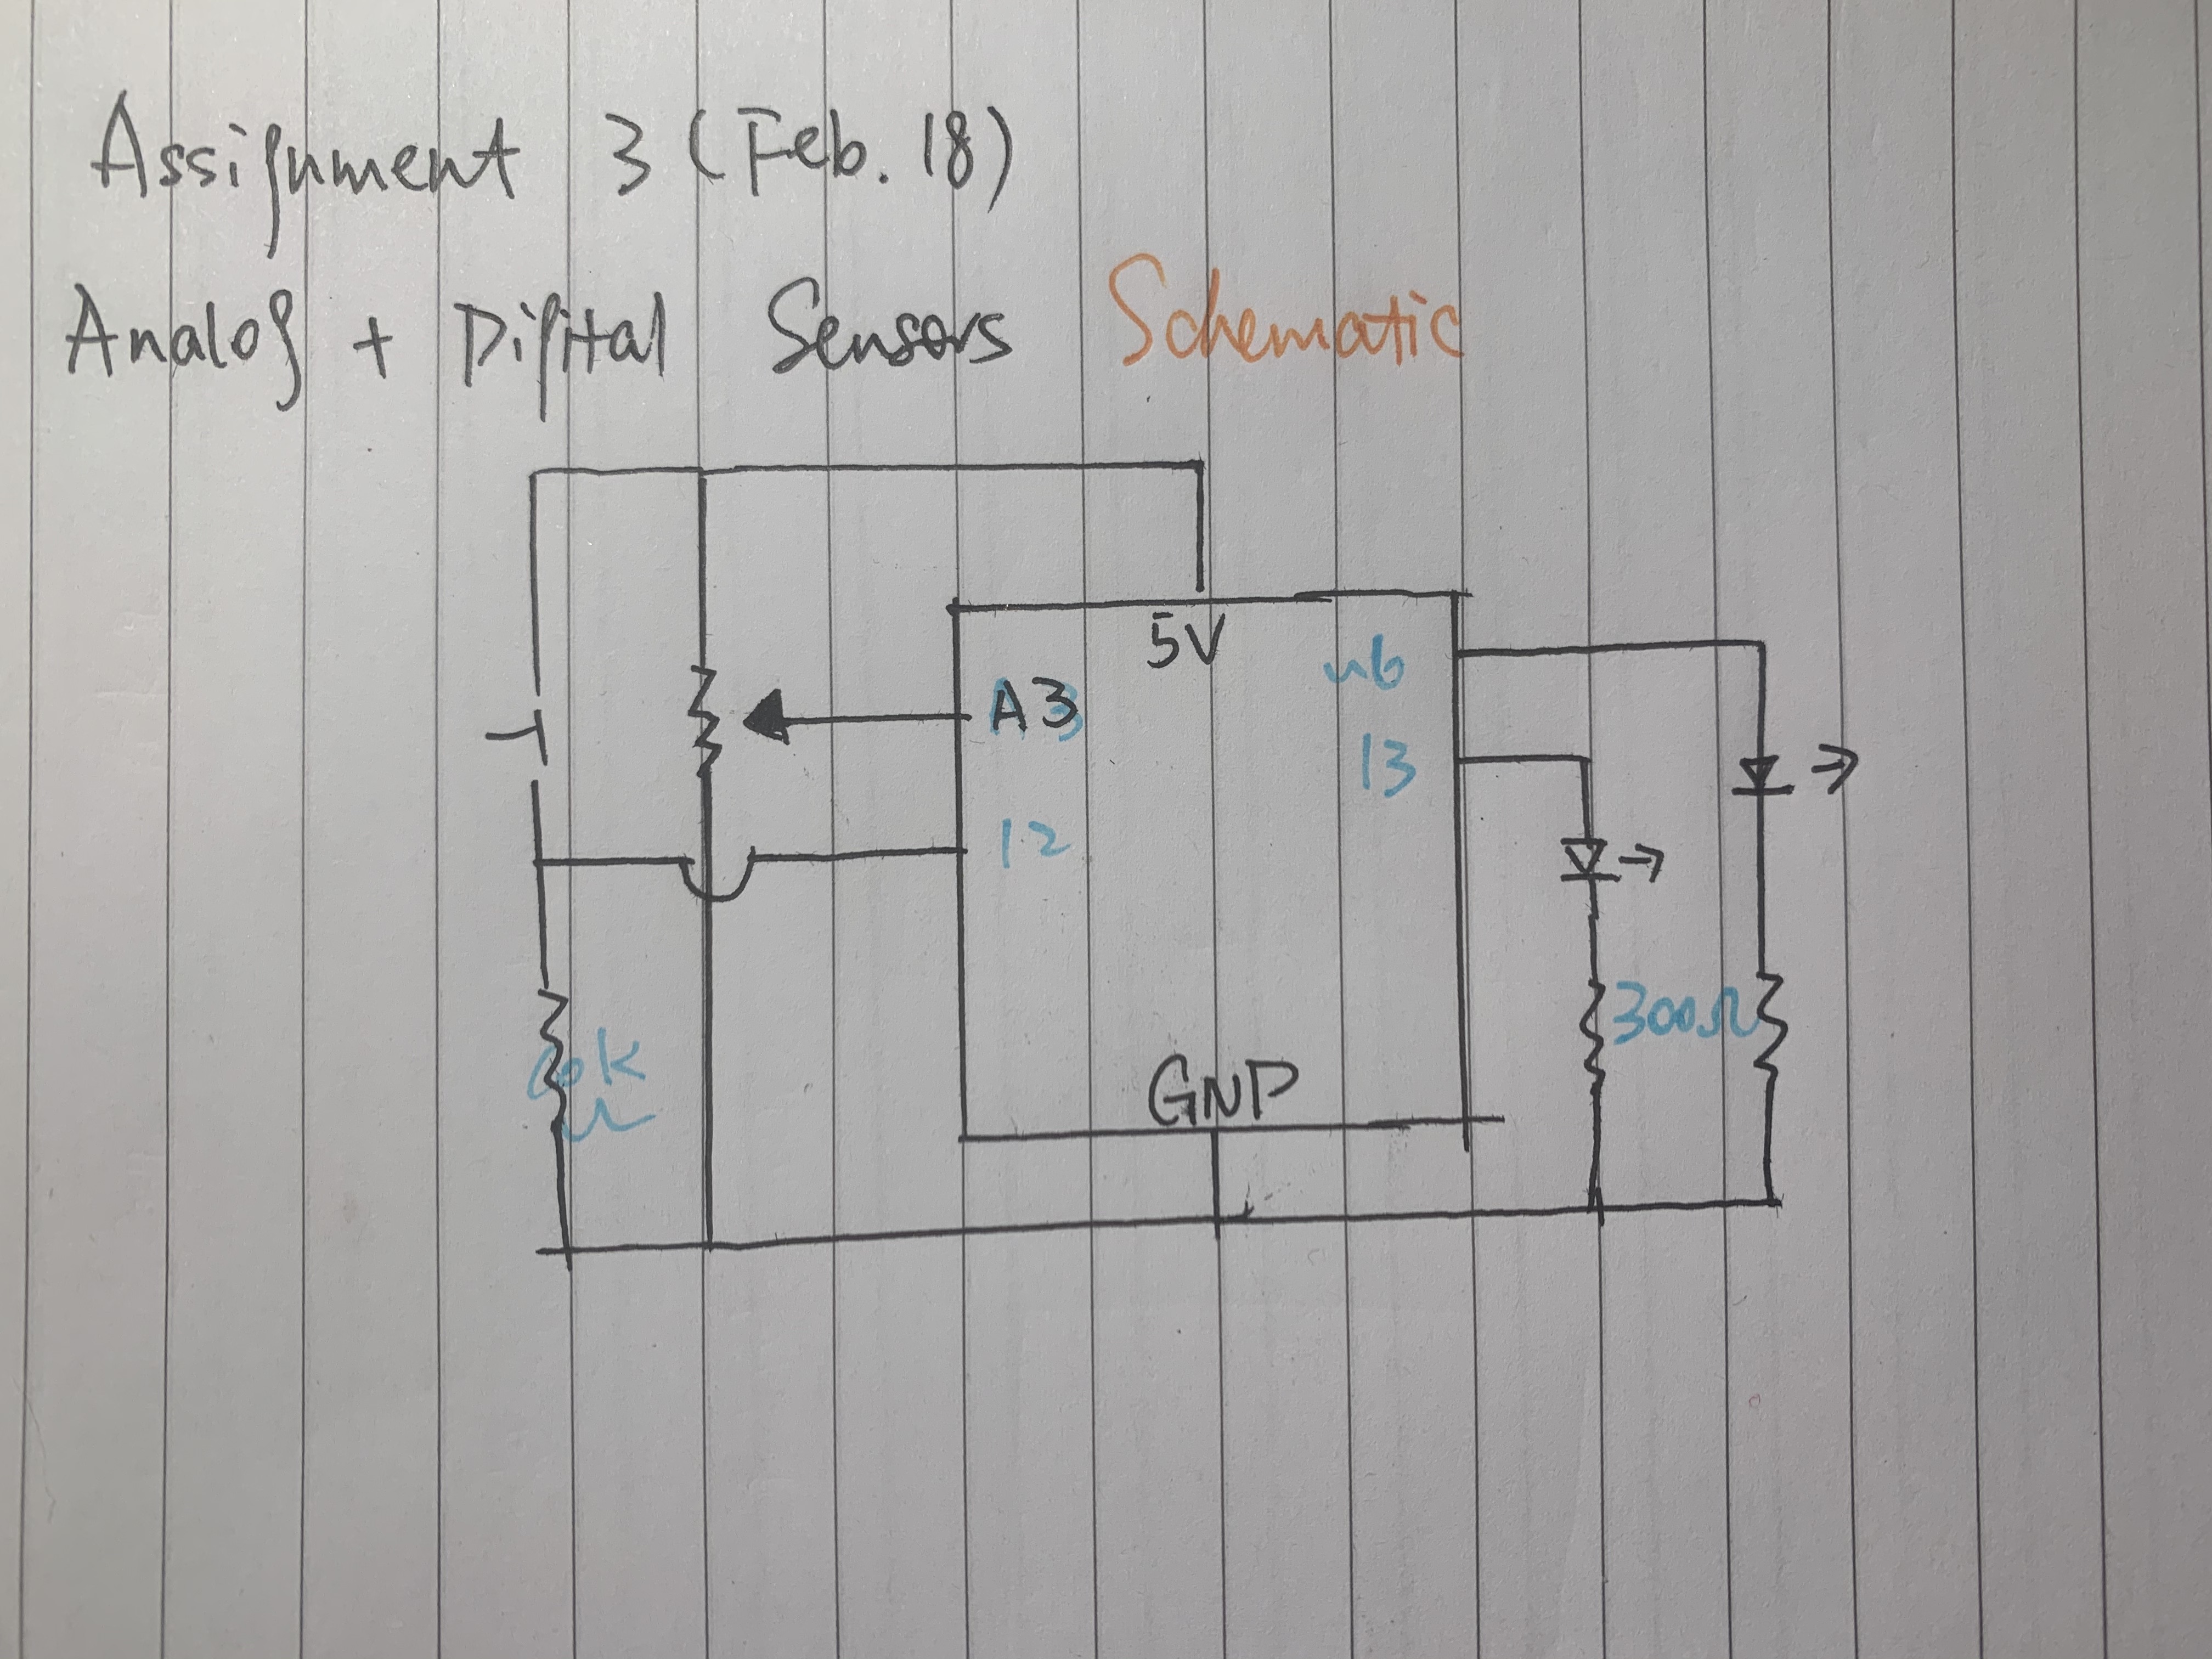 Assignment 3 (Feb. 18)
Analog + Digital Sensors Schematic
5V
~6
A3
13
12
300Ω
GND